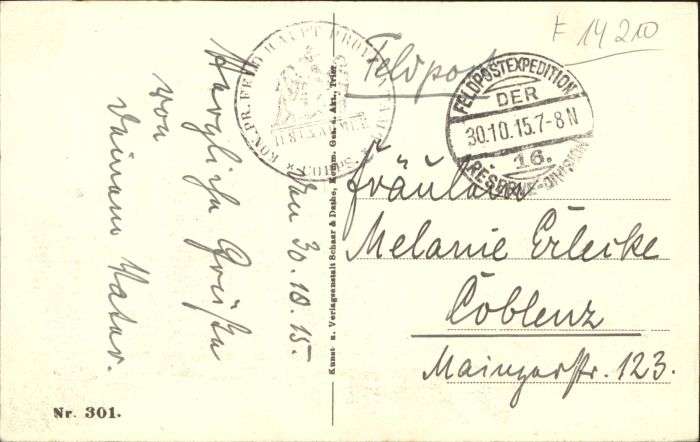 F 14 200
Feldpost
FELDPOSTEXPEDITION
DER
30.10.15.7-8 N
16.
RESERVE-DIVISION
KÖN. PR. FELD HAUPT PROVIANTAMT
Fräulein
Melanie Erlecke
Coblenz
Mainzerstr. 123.
Den 30.10.15.
Herzliche Grüße
von
Deinem Vater.
Kunst u. Verlagsanstalt Schaar & Dathe, Komm. Ges. a. Akt., Trier.
Nr. 301.